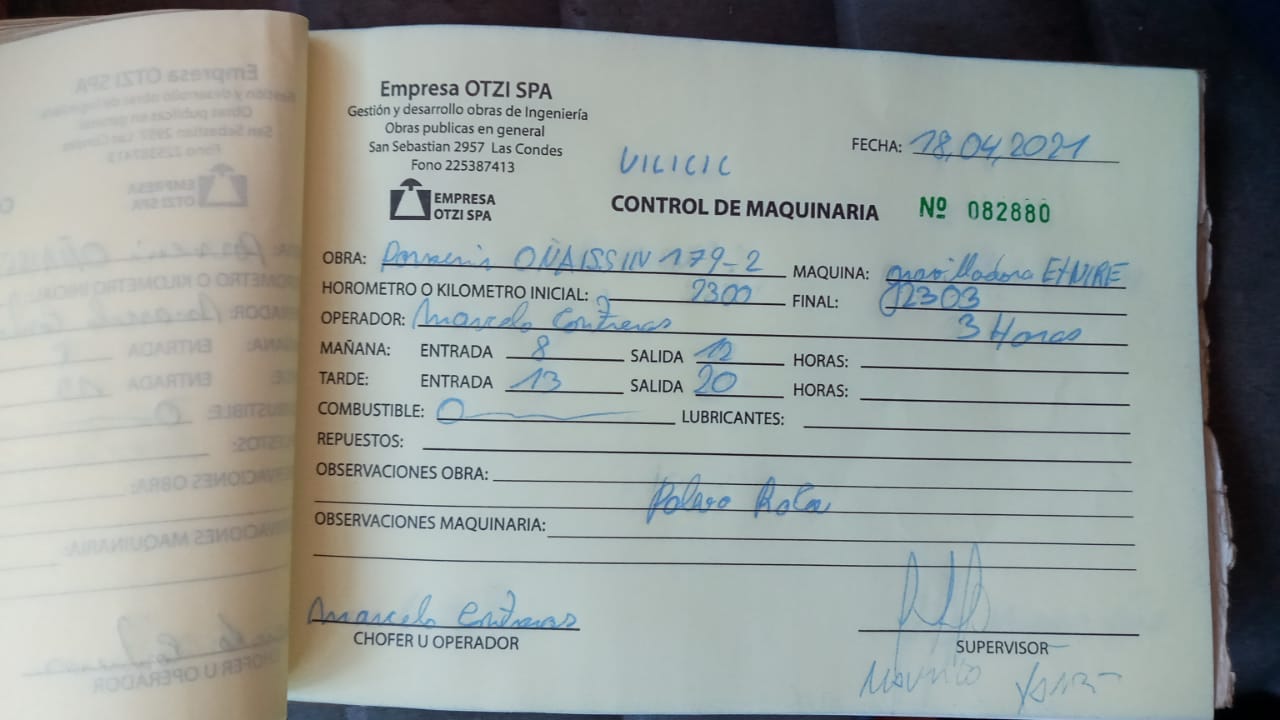 Empresa OTZI SPA
Gestión y desarrollo obras de Ingeniería
Obras publicas en general
San Sebastian 2957 Las Condes
Fono 225387413
EMPRESA
OTZI SPA
VILICIC
FECHA: 18,04,2021
CONTROL DE MAQUINARIA Nº 082880
OBRA: OÑAISSIN 179-2 MAQUINA: gravilladora ETNIRE
HOROMETRO O KILOMETRO INICIAL: 2300 FINAL: 02303
OPERADOR: Marcelo Contreras 3 Horas
MAÑANA: ENTRADA 8 SALIDA 12 HORAS:
TARDE: ENTRADA 13 SALIDA 20 HORAS:
COMBUSTIBLE: 0 LUBRICANTES:
REPUESTOS:
OBSERVACIONES OBRA:
OBSERVACIONES MAQUINARIA:
Marcelo Contreras
CHOFER U OPERADOR
SUPERVISOR